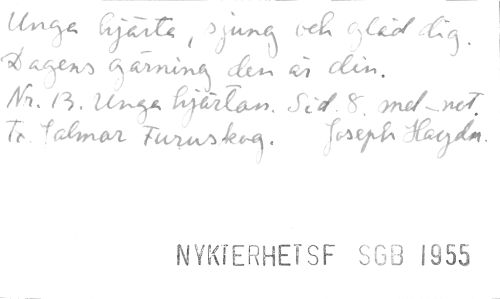 Unga hjärta, sjung och gläd dig.
Dagens gärning den är din.
Nr. 13. Unga hjärtan. Sid. 8. med not.
Tr. Jalmar Furuskog. Joseph Haydn.
NYKTERHETSF SGB 1955